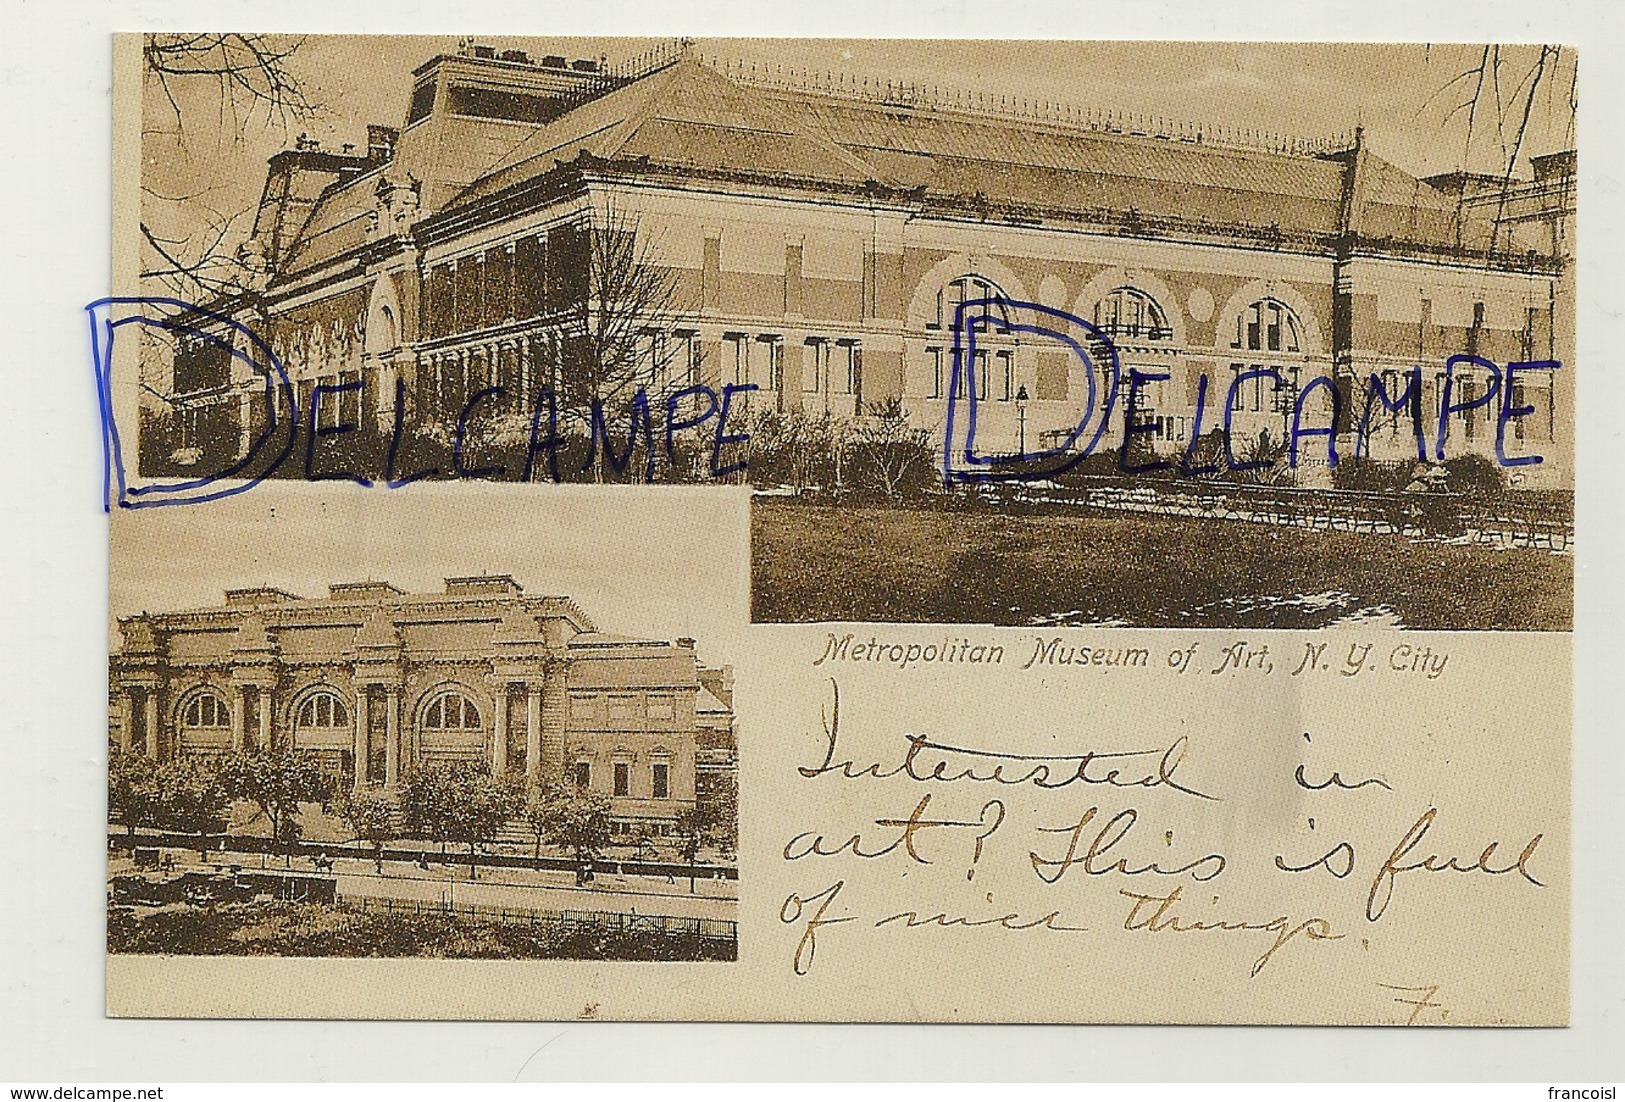 DELCAMPE DELCAMPE
Metropolitan Museum of Art, N. Y. City
Interested in
art? This is full
of nice things.
F.
www.delcampe.net
francoisl